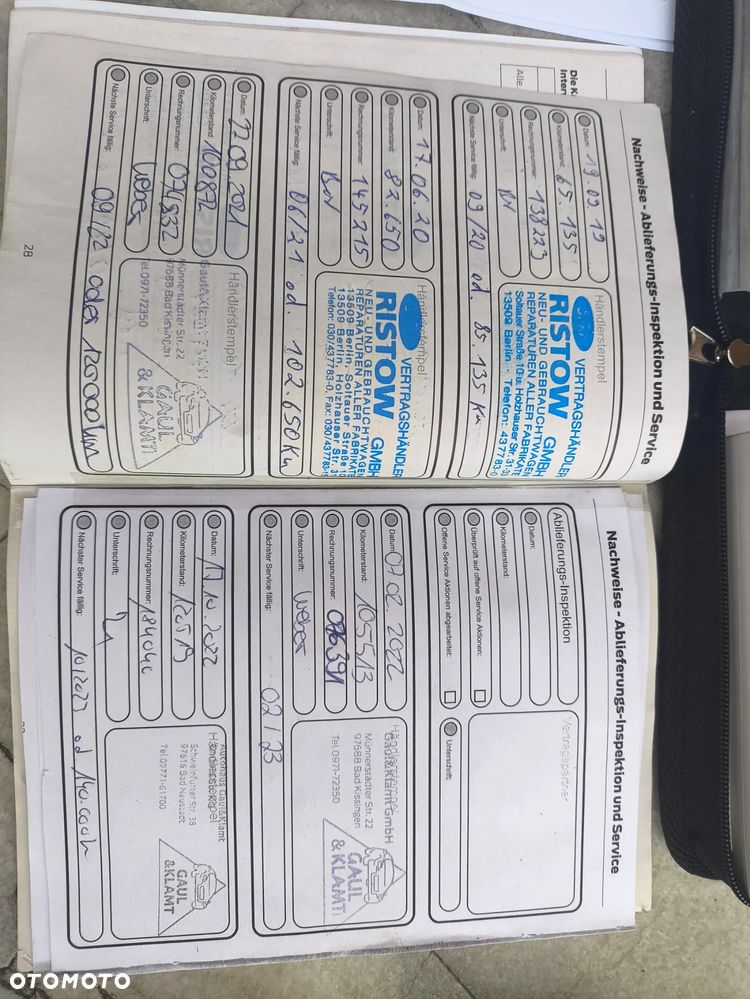 Nachweise - Ablieferungs-Inspektion und Service
Datum: 19.09.19
Kilometerstand: 65.135
Rechnungsnummer: 138223
Unterschrift:
Nächste Service fällig: 09/20 od. 85.135 Km
Händlerstempel
VERTRAGSHÄNDLER
RISTOW GMBH
NEU- UND GEBRAUCHTWAGEN
REPARATUREN ALLER FABRIKATE
Soltauer Straße 10 u. Holzhauser Str. 31-33
13509 Berlin · Telefon: 4377 83-0
Datum: 17.06.20
Kilometerstand: 82.650
Rechnungsnummer: 145215
Unterschrift:
Nächste Service fällig: 06/21 od. 102.650 Km
Händlerstempel
VERTRAGSHÄNDLER
RISTOW GMBH
NEU- UND GEBRAUCHTWAGEN
REPARATUREN ALLER FABRIKATE
13509 Berlin, Soltauer Straße 10
13509 Berlin, Holzhauser Str. 31
Telefon: 030/437783-0, Fax: 030/437783-
Datum: 22.09.2021
Kilometerstand: 100872
Rechnungsnummer: 074832
Unterschrift: Weber
Nächste Service fällig: 09/22 oder 120000km
Händlerstempel
Münnerstädter Str. 22
97688 Bad Kissingen
Tel.0971-72350
GAUL
& KLAMT
28
Nachweise - Ablieferungs-Inspektion und Service
Ablieferungs-Inspektion
Datum:
Kilometerstand:
Überprüft auf offene Service Aktionen:
Offene Service Aktionen abgearbeitet:
Vertragspartner
Unterschrift:
Datum: 07.02.2022
Kilometerstand: 105513
Rechnungsnummer: 076391
Unterschrift: Weber
Nächster Service fällig: 02/23
Händlerstempel
Gaul&Klamt GmbH
Münnerstädter Str. 22
97688 Bad Kissingen
Tel.0971-72350
GAUL
&KLAMT
Datum:
Kilometerstand:
Rechnungsnummer: 184040
Unterschrift:
Nächster Service fällig:
Händlerstempel
Autohaus Gaul&Klamt
Schweinfurter Str. 38
97616 Bad Neustadt
Tel.09771-61700
GAUL
&KLAMT
OTOMOTO